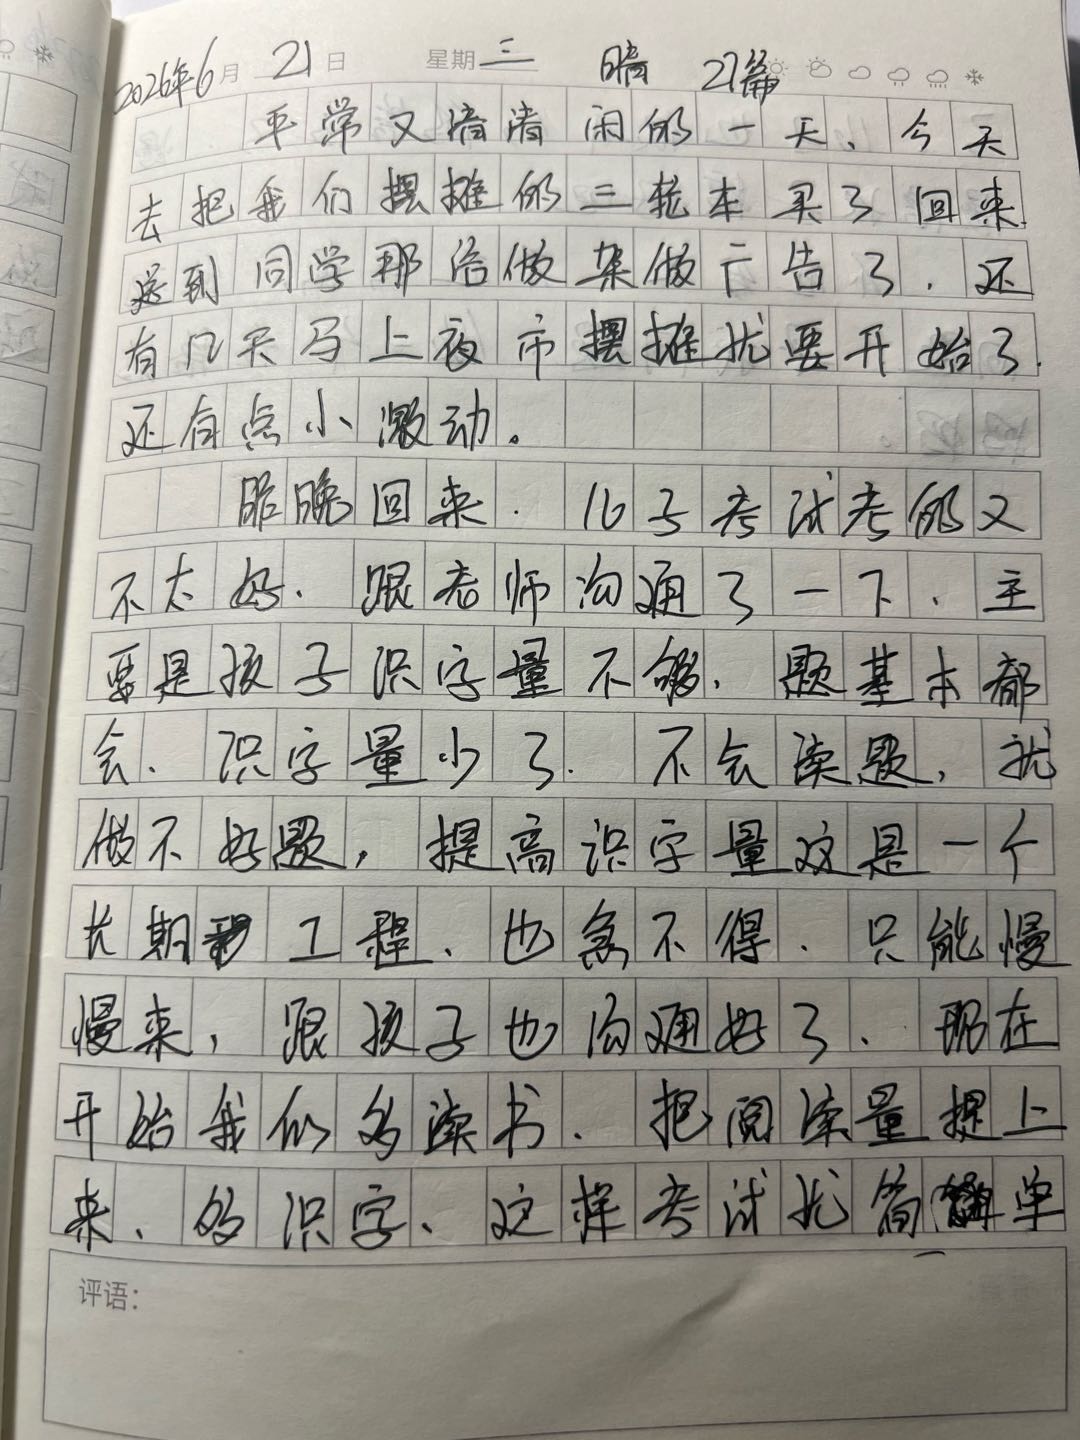 2026年6月21日 星期三 晴 21篇
平常又清清闲的一天、今天
去把我们摆摊的三轮车买了回来
送到同学那给做架做广告了.还
有几天马上夜市摆摊就要开始了.
还有点小激动。
昨晚回来.儿子考试考的又
不太好.跟老师沟通了一下、主
要是孩子识字量不够.题基本都
会.识字量少了.不会读题,就
做不好题,提高识字量这是一个
长期 工程.也急不得.只能慢
慢来,跟孩子也沟通好了.现在
开始我们多读书.把阅读量提上
来、多识字、这样考试就简单
评语: